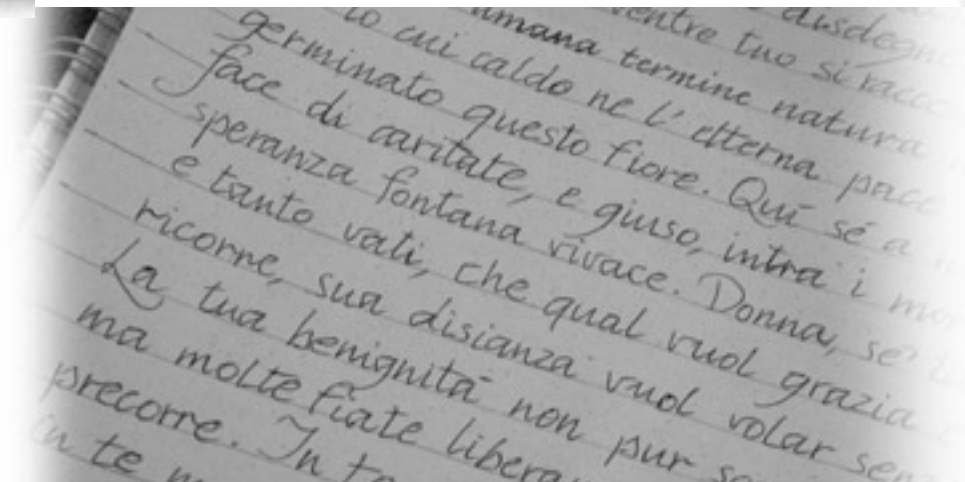 disdegn
ventre tuo si racc
umana termine natura
lo cui caldo ne l' etterna pace
germinato questo fiore. Qui sé a
face di caritate, e giuso, intra i mor
speranza fontana vivace. Donna, se' t
e tanto vali, che qual vuol grazia
ricorre, sua disianza vuol volar sen
La tua benignità non pur so
ma molte fiate libera
precorre. In t
in te m